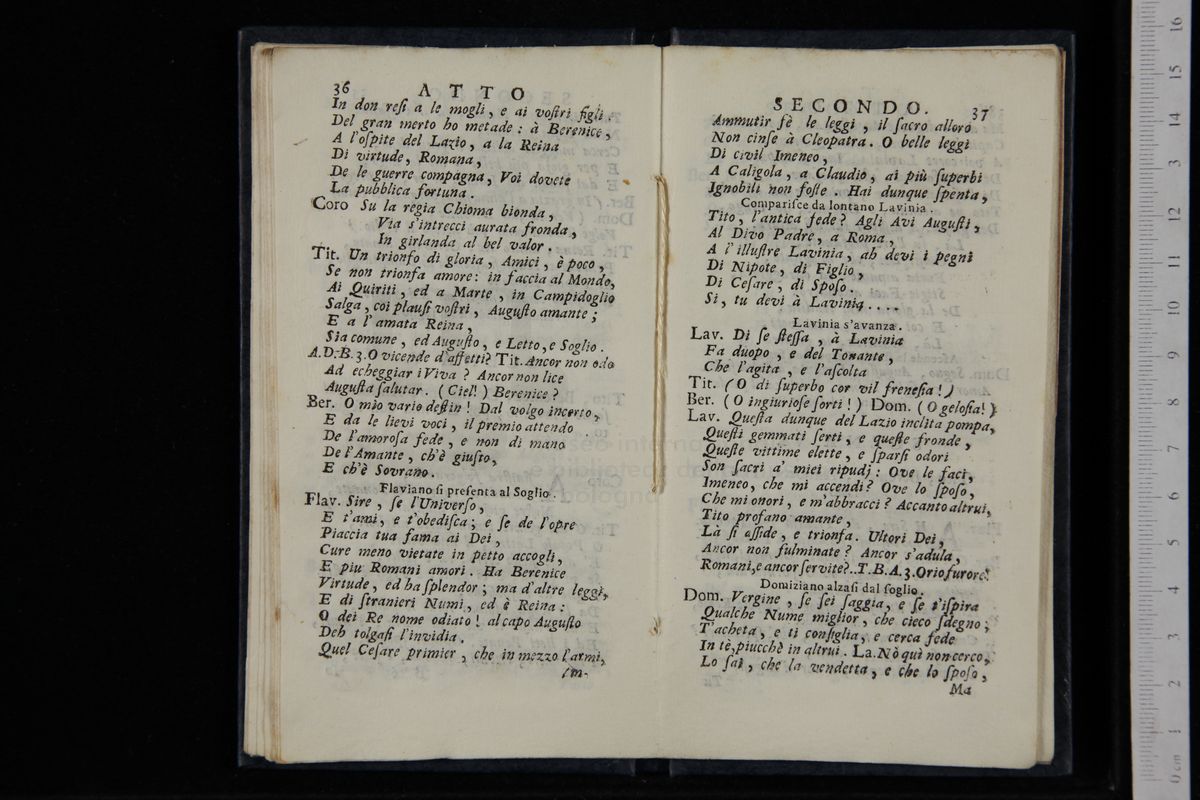 36 ATTO
In don resi a le mogli, e ai voſtri figli.
Del gran merto ho metade: à Berenice,
A l'oſpite del Lazio, a la Reina
Di virtude, Romana,
De le guerre compagna, Voi dovete
La pubblica fortuna.
Coro Su la regia Chioma bionda,
Via s'intrecci aurata fronda,
In girlanda al bel valor.
Tit. Un trionfo di gloria, Amici, è poco,
Se non trionfa amore: in faccia al Mondo,
Ai Quiriti, ed a Marte, in Campidoglio
Salga, coi plauſi voſtri, Auguſto amante;
E a l'amata Reina,
Sia comune, ed Auguſto, e Letto, e Soglio.
A.D.B.3. O vicende d'affetti? Tit. Ancor non odo
Ad echeggiar i Viva? Ancor non lice
Auguſta ſalutar. (Ciel!) Berenice?
Ber. O mio vario deſtin! Dal volgo incerto,
E da le lievi voci, il premio attendo
De l'amoroſa fede, e non di mano
De l'Amante, ch'è giuſto,
E ch'è Sovrano.
Flaviano ſi preſenta al Soglio.
Flav. Sire, ſe l'Univerſo,
E t'ami, e t'obediſca; e ſe de l'opre
Piaccia tua fama ai Dei,
Cure meno vietate in petto accogli,
E piu Romani amori. Ha Berenice
Virtude, ed ha ſplendor; ma d'altre leggi,
E di ſtranieri Numi, ed è Reina:
O dei Re nome odiato! al capo Auguſto
Deh tolgaſi l'invidia.
Quel Ceſare primier, che in mezzo l'armi,
Am-
SECONDO. 37
Ammutir fè le leggi, il ſacro alloro
Non cinſe à Cleopatra. O belle leggi
Di civil Imeneo,
A Caligola, a Claudio, ai più ſuperbi
Ignobili non foſte. Hai dunque ſpenta,
Compariſce da lontano Lavinia.
Tito, l'antica fede? Agli Avi Auguſti,
Al Divo Padre, a Roma,
A l'illuſtre Lavinia, ah devi i pegni
Di Nipote, di Figlio,
Di Ceſare, di Spoſo.
Si, tu devi à Lavinia....
Lavinia s'avanza.
Lav. Di ſe ſteſſa, à Lavinia
Fa duopo, e del Tonante,
Che l'agita, e l'aſcolta
Tit. (O di ſuperbo cor vil freneſia!)
Ber. (O ingiurioſe ſorti!) Dom. (O geloſia!)
Lav. Queſta dunque del Lazio inclita pompa,
Queſti gemmati ſerti, e queſte fronde,
Queſte vittime elette, e ſparſi odori
Son ſacri a' miei ripudj: Ove le faci,
Imeneo, che mi accendi? Ove lo ſpoſo,
Che mi onori, e m'abbracci? Accanto altrui,
Tito profano amante,
Là ſi aſſide, e trionfa. Ultori Dei,
Ancor non fulminate? Ancor s'adula,
Romani, e ancor ſervite?..T.B.A.3. O rio furore!
Domiziano alzaſi dal ſoglio.
Dom. Vergine, ſe ſei ſaggia, e ſe t'iſpira
Qualche Nume miglior, che cieco ſdegno;
T'acheta, e ti conſiglia, e cerca fede
In tè, piucchè in altrui. La. Nò quì non cerco,
Lo ſai, che la vendetta, e che lo ſpoſo,
Ma